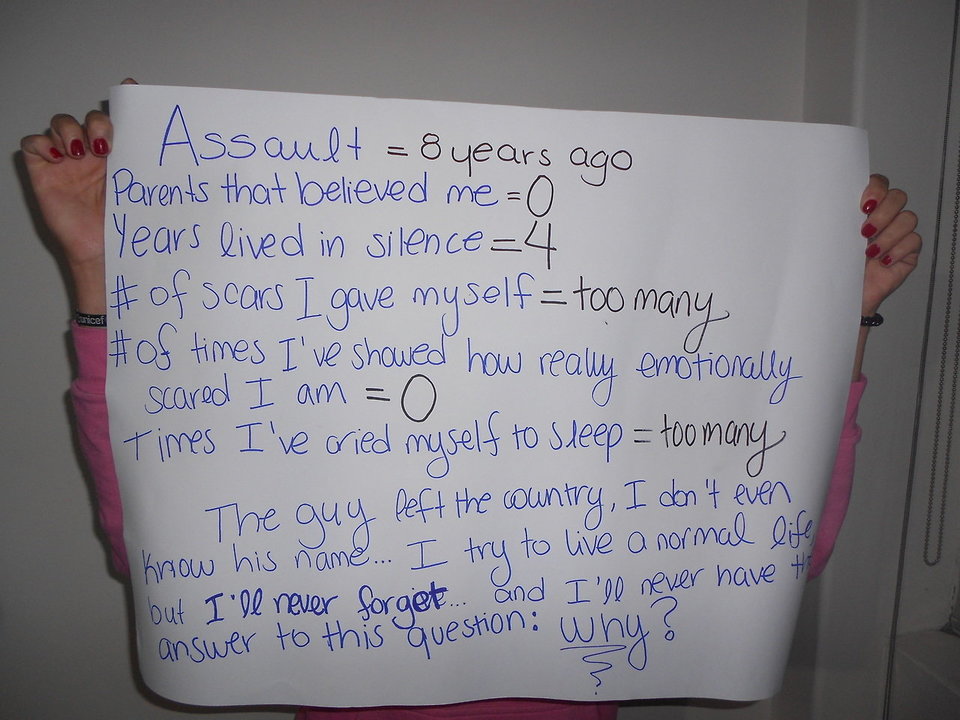 Assault = 8 years ago
Parents that believed me = 0
Years lived in silence = 4
# of scars I gave myself = too many
# of times I've showed how really emotionally
scared I am = 0
Times I've cried myself to sleep = too many
The guy left the country, I don't even
know his name... I try to live a normal life,
but I'll never forget... and I'll never have
answer to this question: why?
unicef